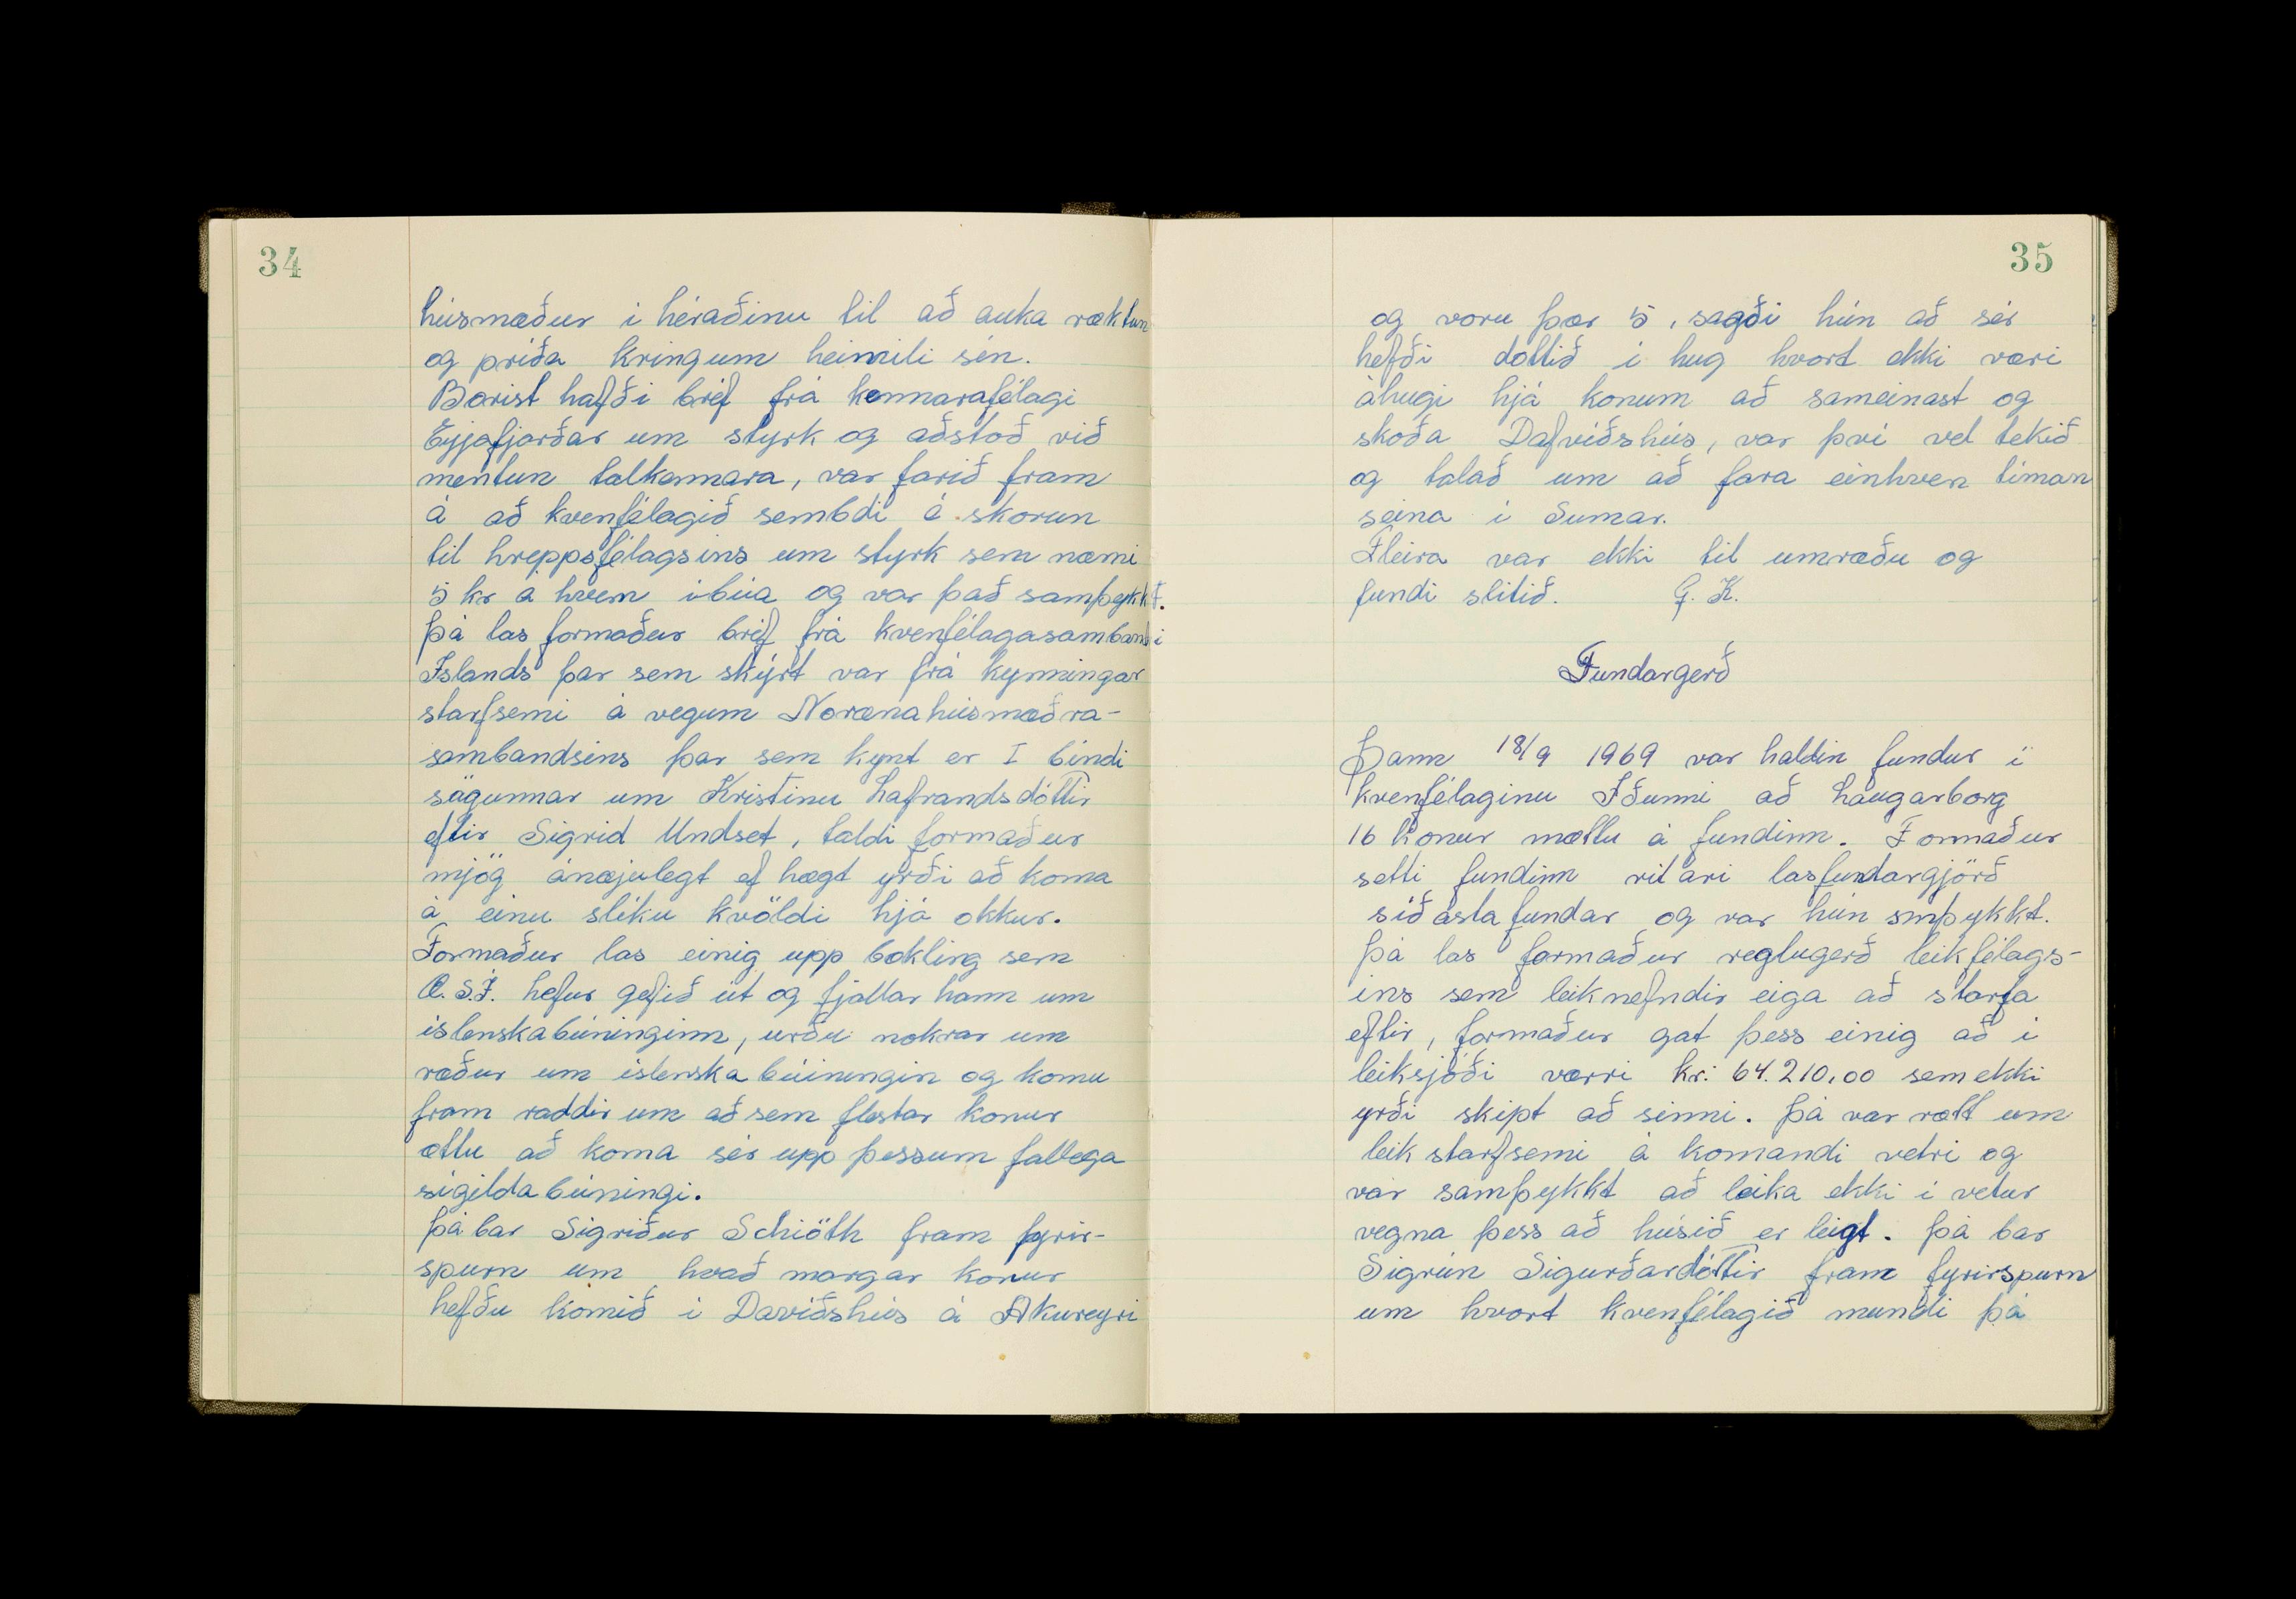 34
húsmæður i héraðinu til að auka ræktun
og príða kringum heimili sín.
Borist hafði bréf frá kennarafélagi
Eyjafjarðar um styrk og aðstoð við
mentun talkennara, var farið fram
á að kvenfélagið sembdi á skorun
til hreppsfélagsins um styrk sem næmi
5 kr á hvern íbúa og var það samþykkt.
Þá las formaður bréf frá kvenfélagasambandi
Íslands þar sem skýrt var frá kynningar
starfsemi á vegum Norænahúsmæðra-
sambandsins þar sem kynt er I bindi
sögunnar um Kristínu Lafrandsdóttir
eftir Sigrid Undset, taldi formaður
mjög ánæjulegt ef hægt yrði að koma
á einu slíku kvöldi hjá okkur.
Formaður las einig upp bækling sem
Ö.S.Í. hefur gefið út og fjallar hann um
íslenskabúninginn, urðu nokrar um
ræður um íslenska búiningin og komu
fram raddir um að sem flestar konur
ættu að koma sér upp þessum fallega
sígilda búningi.
Þá bar Sigríður Schiöth fram fyrir-
spurn um hvað margar konur
hefðu komið i Davíðshús á Akureyri
35
og voru þær 5, sagði hún að sér
hefði dottið i hug hvort ekki væri
áhugi hjá konum að sameinast og
skoða Dafviðshús, var því vel tekið
og talað um að fara einhven tíman
seina i Sumar.
Fleira var ekki til umræðu og
fundi slitið. G. K.
Fundargerð
Þann 18/9 1969 var haldin fundur í
kvenfélaginu Iðunni að Laugarborg
16 konur mættu á fundinn. Formaður
setti fundinn ritari las fundargjörð
síðasta fundar og var hún smþykkt.
Þá las formaður reglugerð leikfélags-
ins sem leiknefndir eiga að starfa
eftir, formaður gat þess einig að i
leiksjóði værri kr: 64.210,00 sem ekki
yrði skipt að sinni. Þá var rætt um
leik starfsemi á komandi vetri og
var samþykkt að leika ekki i vetur
vegna þess að húsið er leigt. Þá bar
Sigrún Sigurðardóttir fram fyrirspurn
um hvort kvenfélagið mundi þá